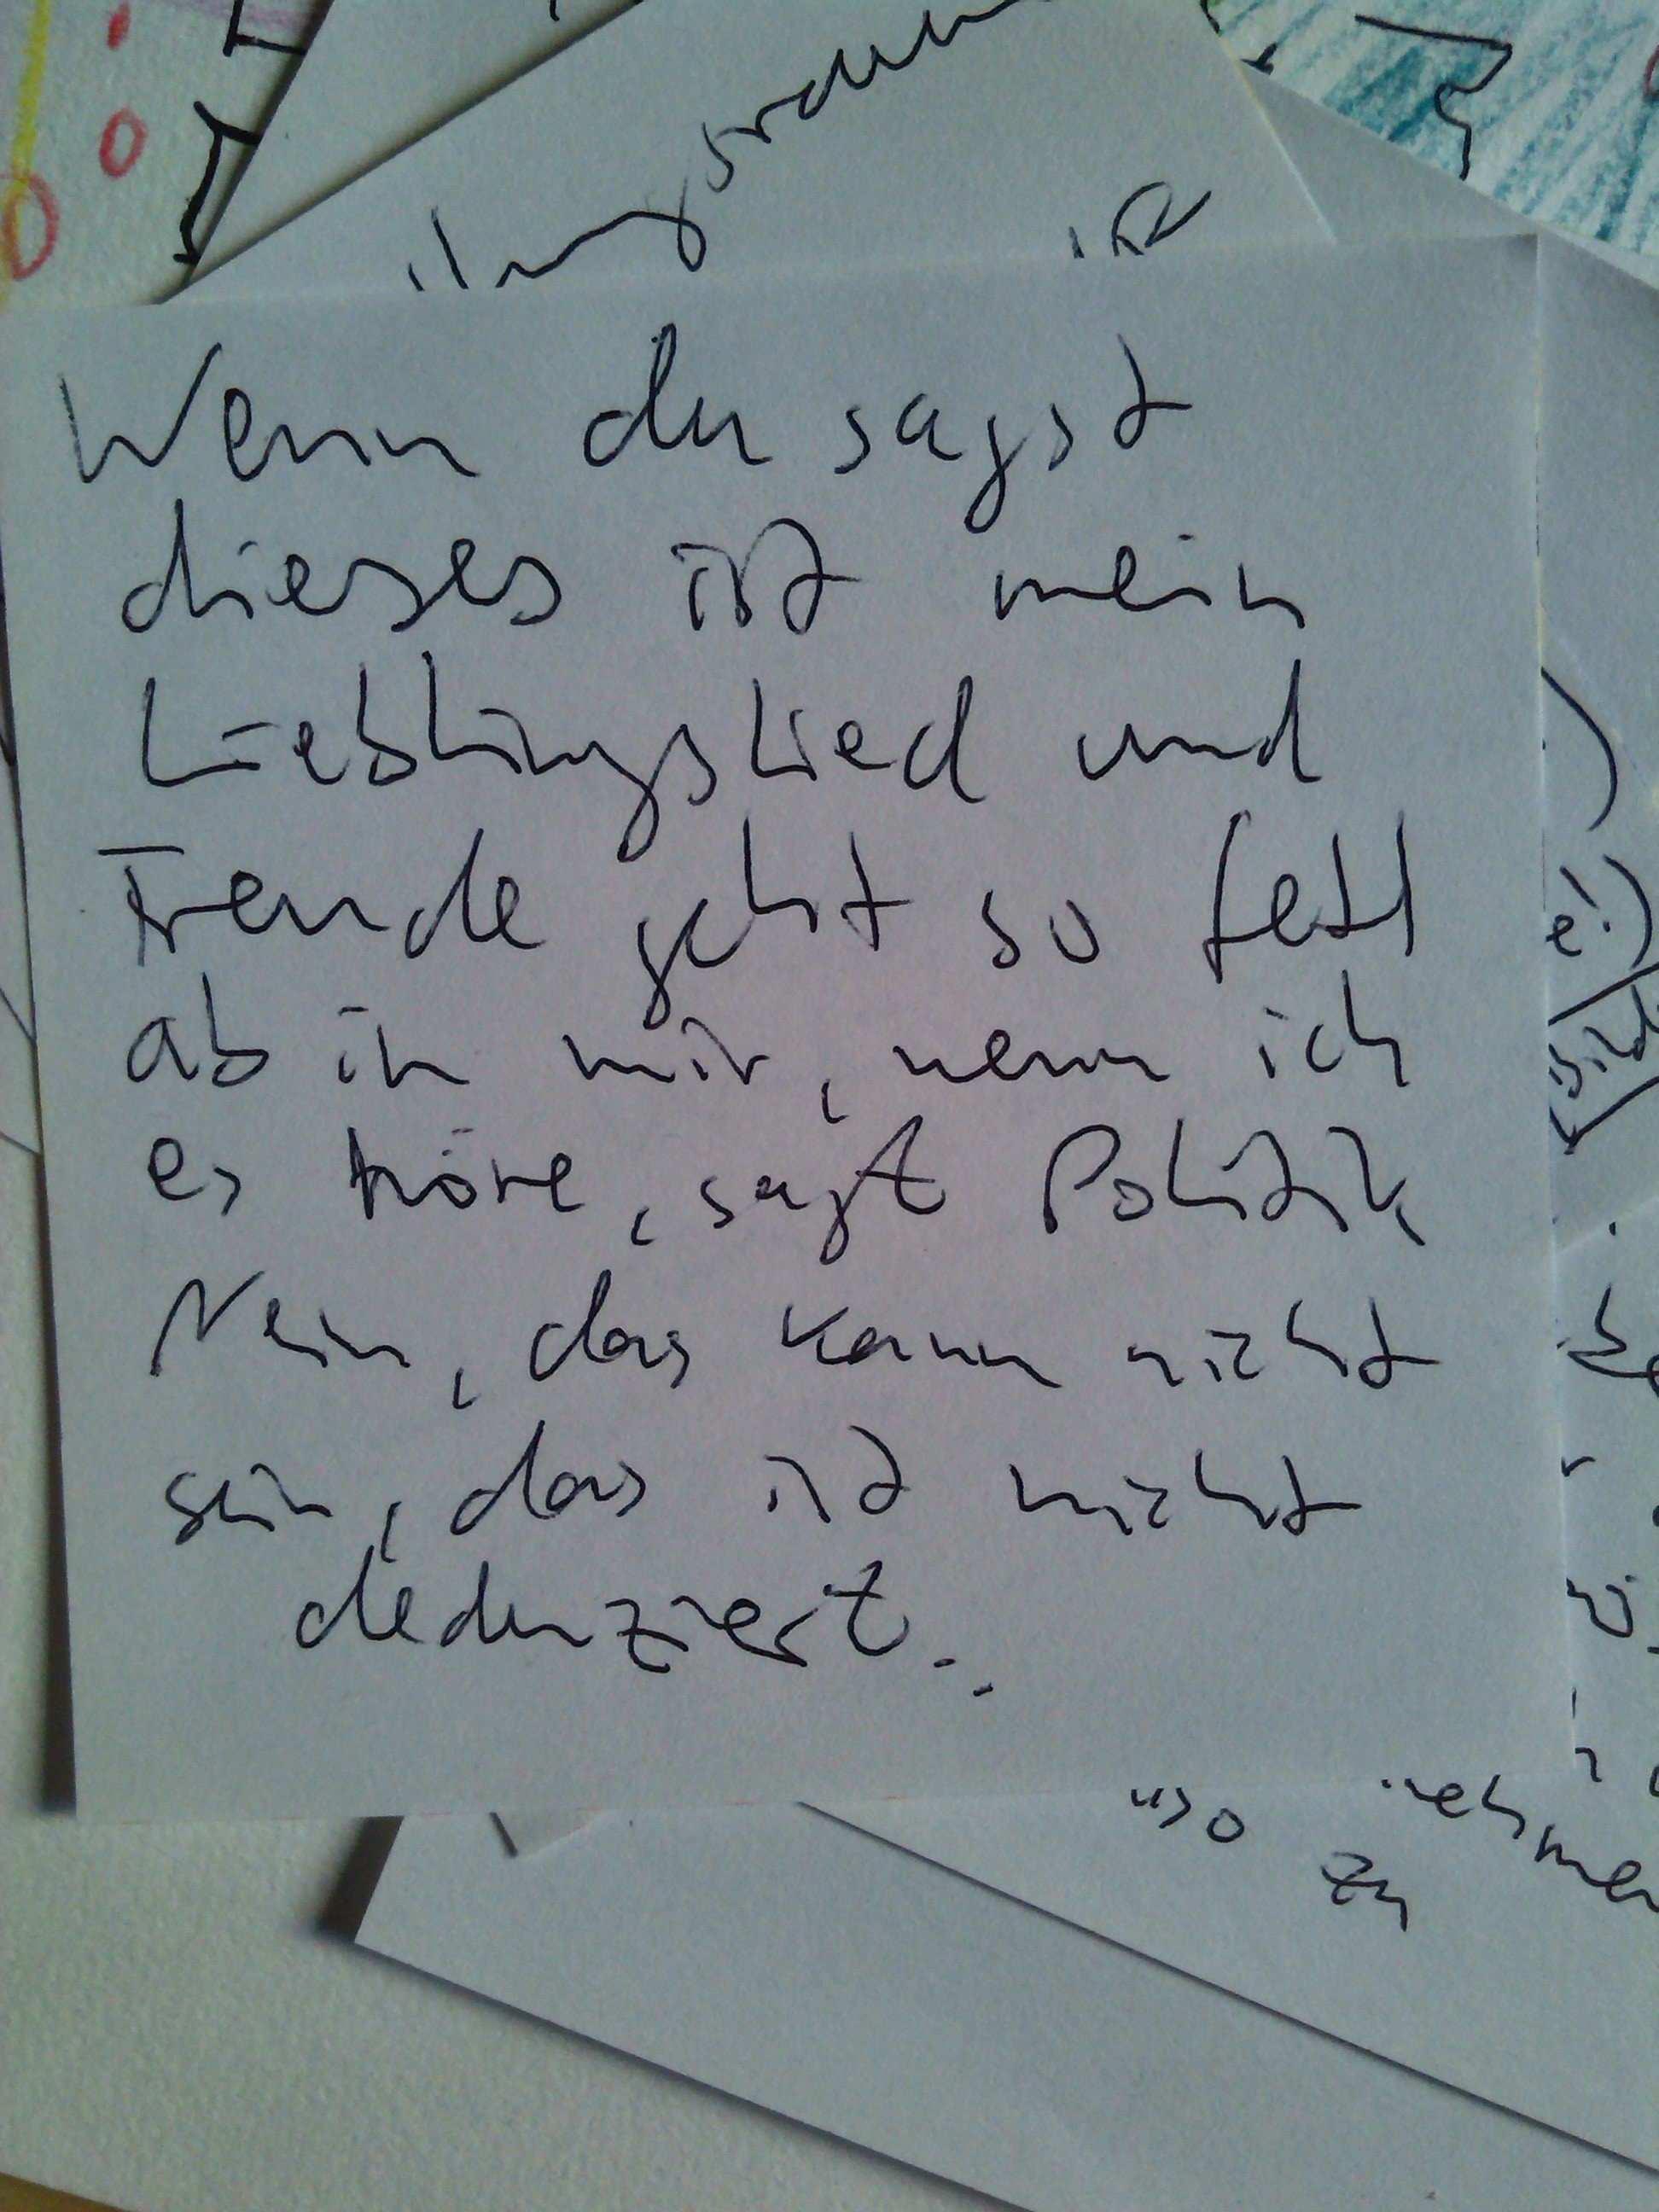 Wenn du sagst
dieses ist mein
Lieblingslied und
Freude geht so fett
ab in mir, wenn ich
es höre, sagt Politik
Nein, das kann nicht
sein, das ist nicht
deduziert..
e!)
Bild
nehmen
zu